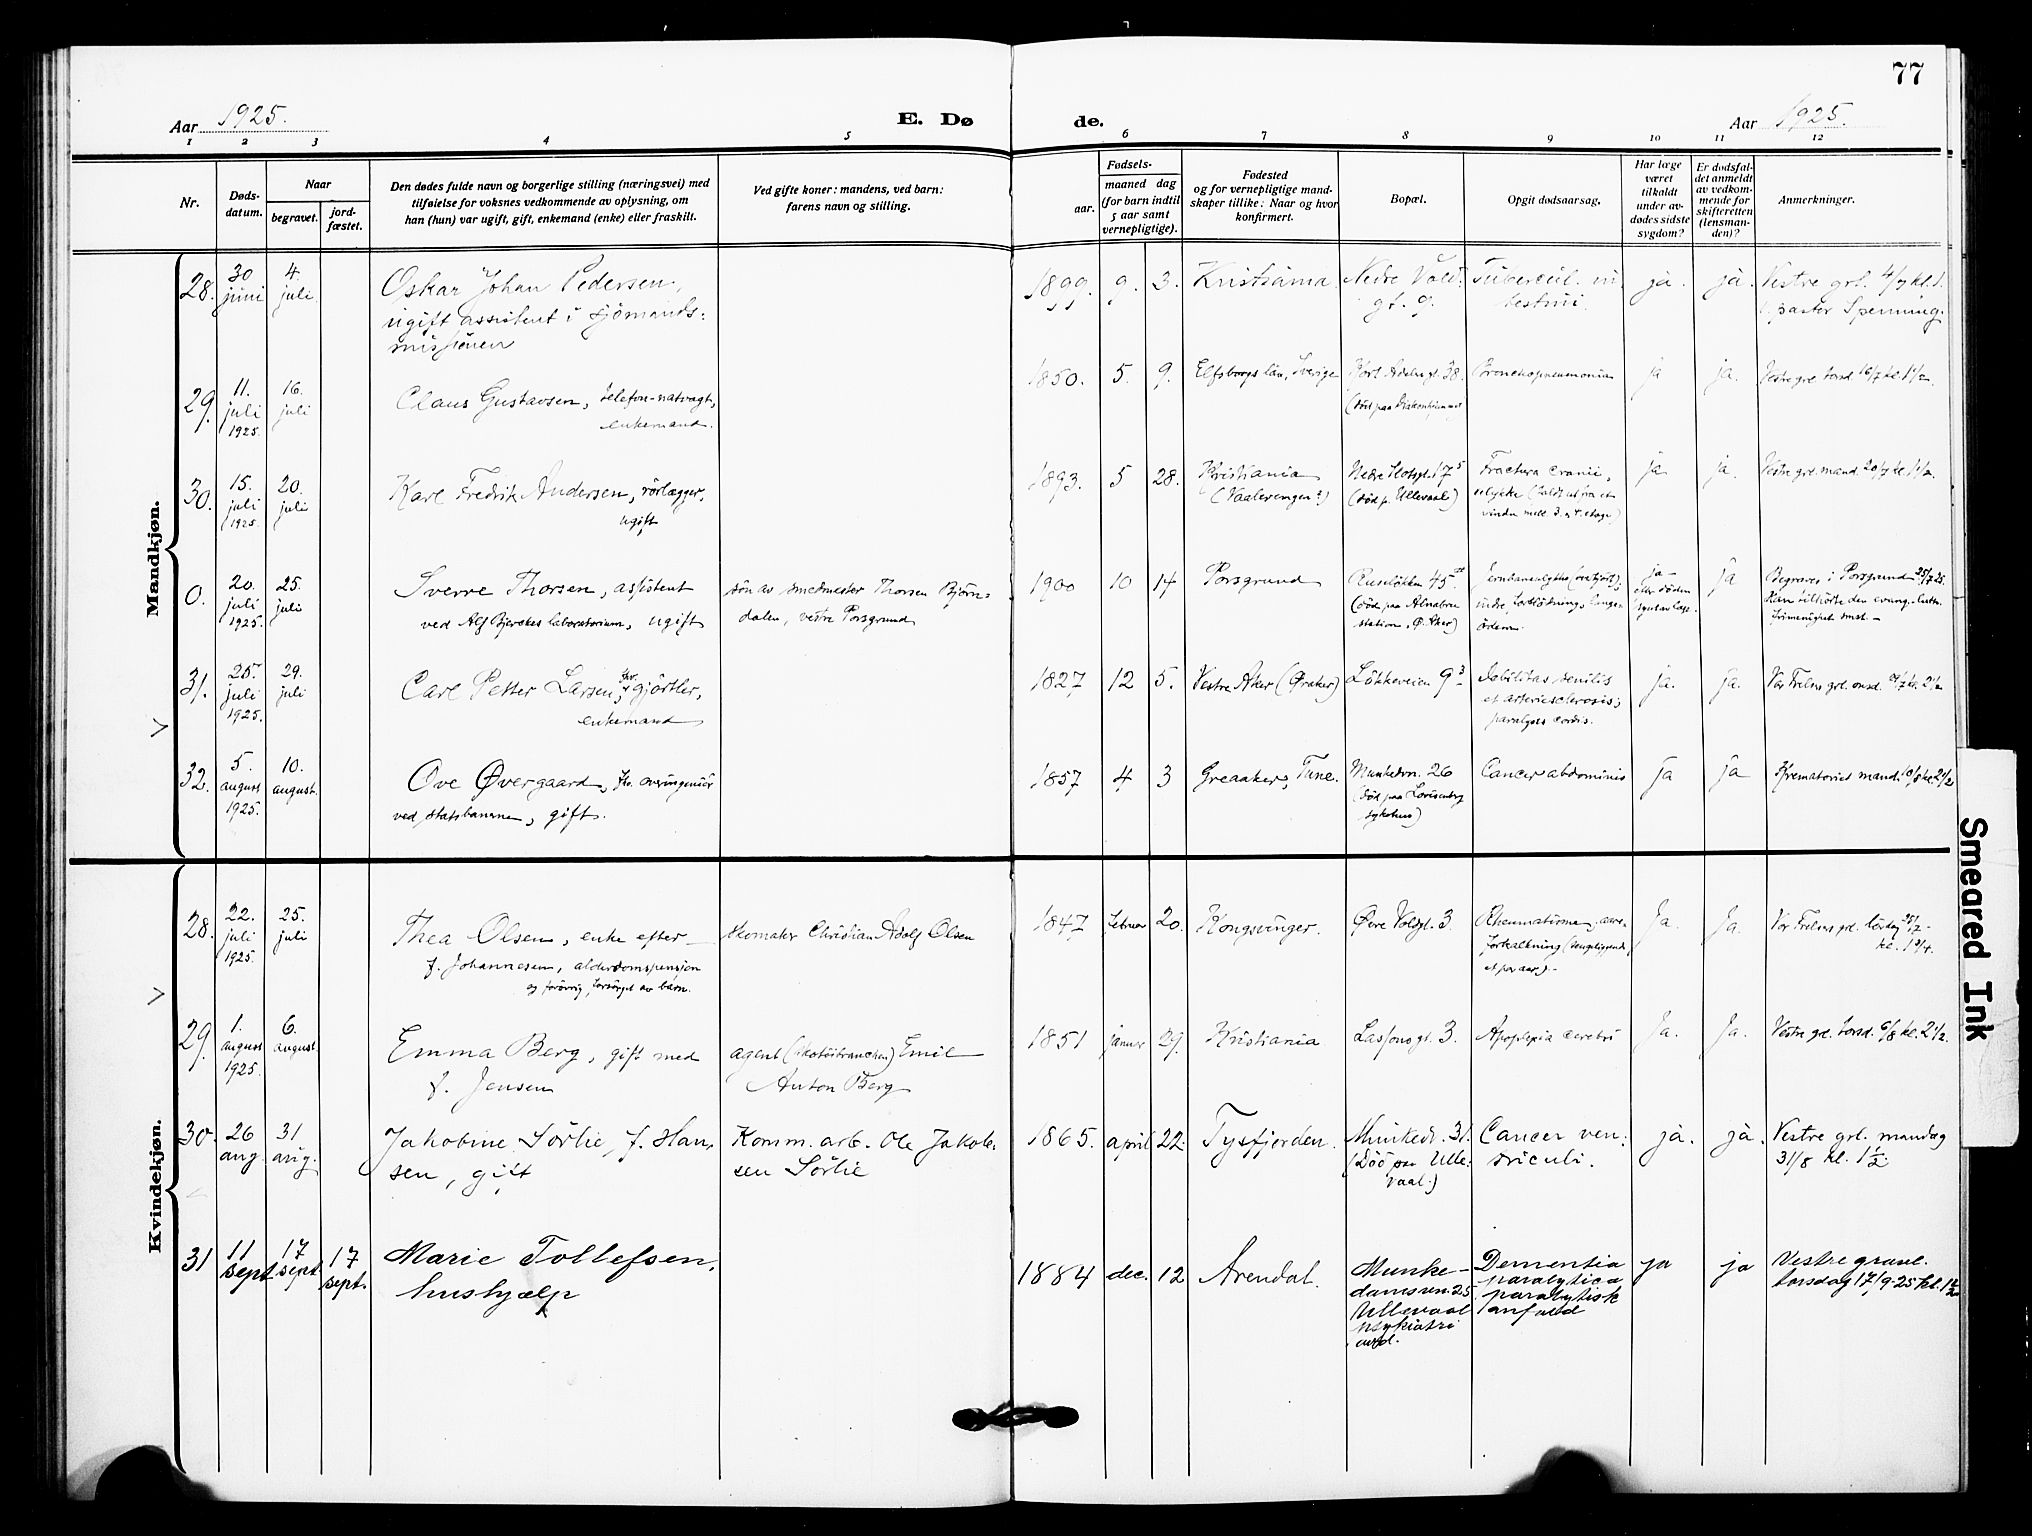 77
Aar 1925.
E. Dø de.
Aar 1925.
1 2 3 4 5 6 7 8 9 10 11 12
Nr.
Døds-
datum.
Naar
begravet.
jord-
fæstet.
Den dødes fulde navn og borgerlige stilling (næringsvei) med
tilføielse for voksnes vedkommende av oplysning, om
han (hun) var ugift, gift, enkemand (enke) eller fraskilt.
Ved gifte koner: mandens, ved barn:
farens navn og stilling.
Fødsels-
aar.
maaned dag
(for barn indtil
5 aar samt
vernepligtige).
Fødested
og for vernepligtige mand-
skaper tillike: Naar og hvor
konfirmert.
Bopæl.
Opgit dødsaarsag.
Har læge
været
tilkaldt
under av-
dødes sidste
sygdom?
Er dødsfal-
det anmeldt
av vedkom-
mende for
skifteretten
(lensman-
den)?
Anmerkninger.
Mandkjøn.
28.
30
juni
4.
juli
Oskar Johan Pedersen,
ugift assistent i sjömands-
missionen
1899. 9. 3.
Kristiania.
Nedre Vold-
gt. 9.
Tubercul. in
testini.
ja.
ja.
Vestre grl. 4/7 kl. 1.
pastor Spenning.
29.
11.
juli
1925.
16.
juli
Claus Gustavsen, telefon-natvagt,
enkemand.
1850. 5. 9.
Elfsborgs län, Sverige
Kort Adelersgt. 38.
(död paa Diakonhjemmet
Bronchopneumonia
ja
ja.
Vestre grl. torsd. 16/7 kl. 1 1/2.
30.
15.
juli
1925.
20.
juli
Karl Fredrik Andersen, rörlægger,
ugift
1893. 5 28.
Kristiania
(Vaalerengen?)
Nedre Slotsgt. 17 5
(död p. Ullevaal)
Fractura cranii,
ulykke (faldt ut fra et
vindu mell. 3. og 4. etage)
ja
ja.
Vestre grl. mand. 20/7 kl. 1 1/2.
0.
20.
juli
1925.
25.
juli
Sverre Thorsen, assistent
ved Alf Bjerckes laboratorium, ugift
sön av smedmester Thorsen Björn-
dalen, vestre Porsgrund
1900 10 14
Porsgrund
Ruselökken 45
(död paa Alnabru
station, Ö. Aker)
Jernbaneulykke (overkjört),
indre forblödning, lunge-
ödem.
ja –
efter döden
ja
Begraves i Porsgrund 25/7 25.
Han tilhörte den evang.-luth.
frimenighet smst. –
31.
25.
juli
1925.
29.
juli
Carl Petter Larsen, fhv. gjörtler,
enkemand
1827 12 5.
Vestre Aker (Øraker)
Lökkeveien 9 3
Debilitas senilis
et arteriesclerosis;
paralysis cordis.
ja.
ja.
Vor Frelsers grl. onsd. 29/7 kl. 2 1/2
32.
5.
august
1925.
10.
august.
Ove Øvergaard, fhv. overingeniör
ved statsbanerne, gift.
1857 4 3
Greaaker, Tune.
Munkedm. 26
(död paa Lovisenberg
sykehus)
Cancer abdominis
ja
ja
Krematoriet mand. 10/8 kl. 2 1/2
Kvindekjøn.
28.
22.
juli
1925.
25.
juli
Thea Olsen, enke efter –
f. Johannesen, alderdomspension
og forövrig forsörget av barn.
skomaker Christian Adolf Olsen
1847 februar 20.
Kongsvinger.
Øvre Voldgt. 3.
Rheumatisme, aare-
forkalkning (sengeliggende
et par aar). –
Ja.
Ja.
Vor Frelsers grl. lördag 25/7 –
kl. 1 3/4.
29.
1.
august
1925.
6.
august.
Emma Berg, gift med
f. Jensen
agent (skotöibranchen) Emil
Anton Berg
1851 januar 29.
Kristiania
Lassonsgt. 3.
Apoplexia cerebri
Ja.
Ja.
Vestre grl. torsd. 6/8 kl. 2 1/2.
30.
26
aug.
31
aug.
Jakobine Sörlie, f. Han-
sen, gift
Komm. arb. Ole Jakob-
sen Sörlie
1865. april 22.
Tysfjorden.
Munkedv. 31.
(Död paa Ulle-
vaal.)
Cancer ven-
triculi.
ja.
ja.
Vestre grl. mandag
31/8 kl. 1 1/2.
31
11
sept.
17
sept.
17
sept.
Marie Tollefsen,
hushjælp
1884 dec. 12
Arendal.
Munke-
damsvn. 25.
Ullevaal
psykiatri
avd.
Dementia
paralytica
paralytisk
anfald
ja
ja
Vestre gravl.
torsdag 17/9-25 kl. 1 1/2
Smeared Ink